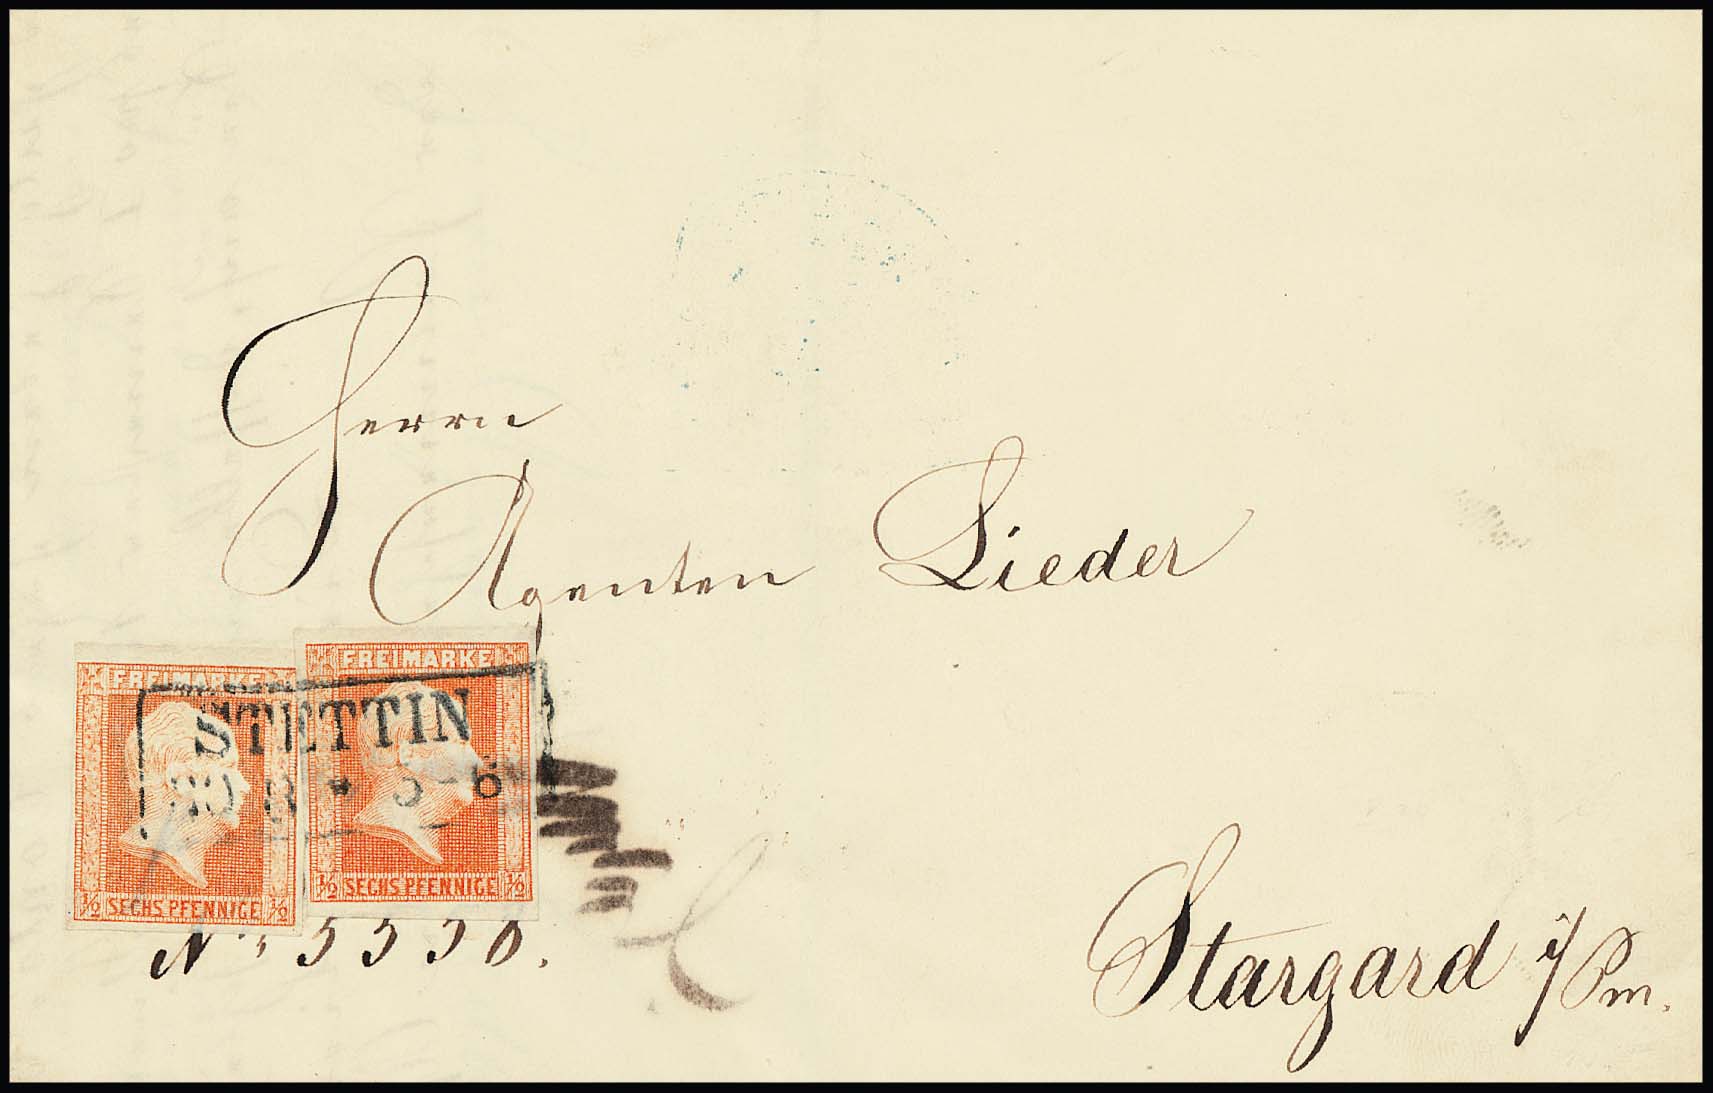 Herrn
Agenten Lieder
FREIMARKE
SECHS PFENNIGE
½ ½
FREIMARKE
SECHS PFENNIGE
½ ½
STETTIN
5-6
Stargard i/Pm.